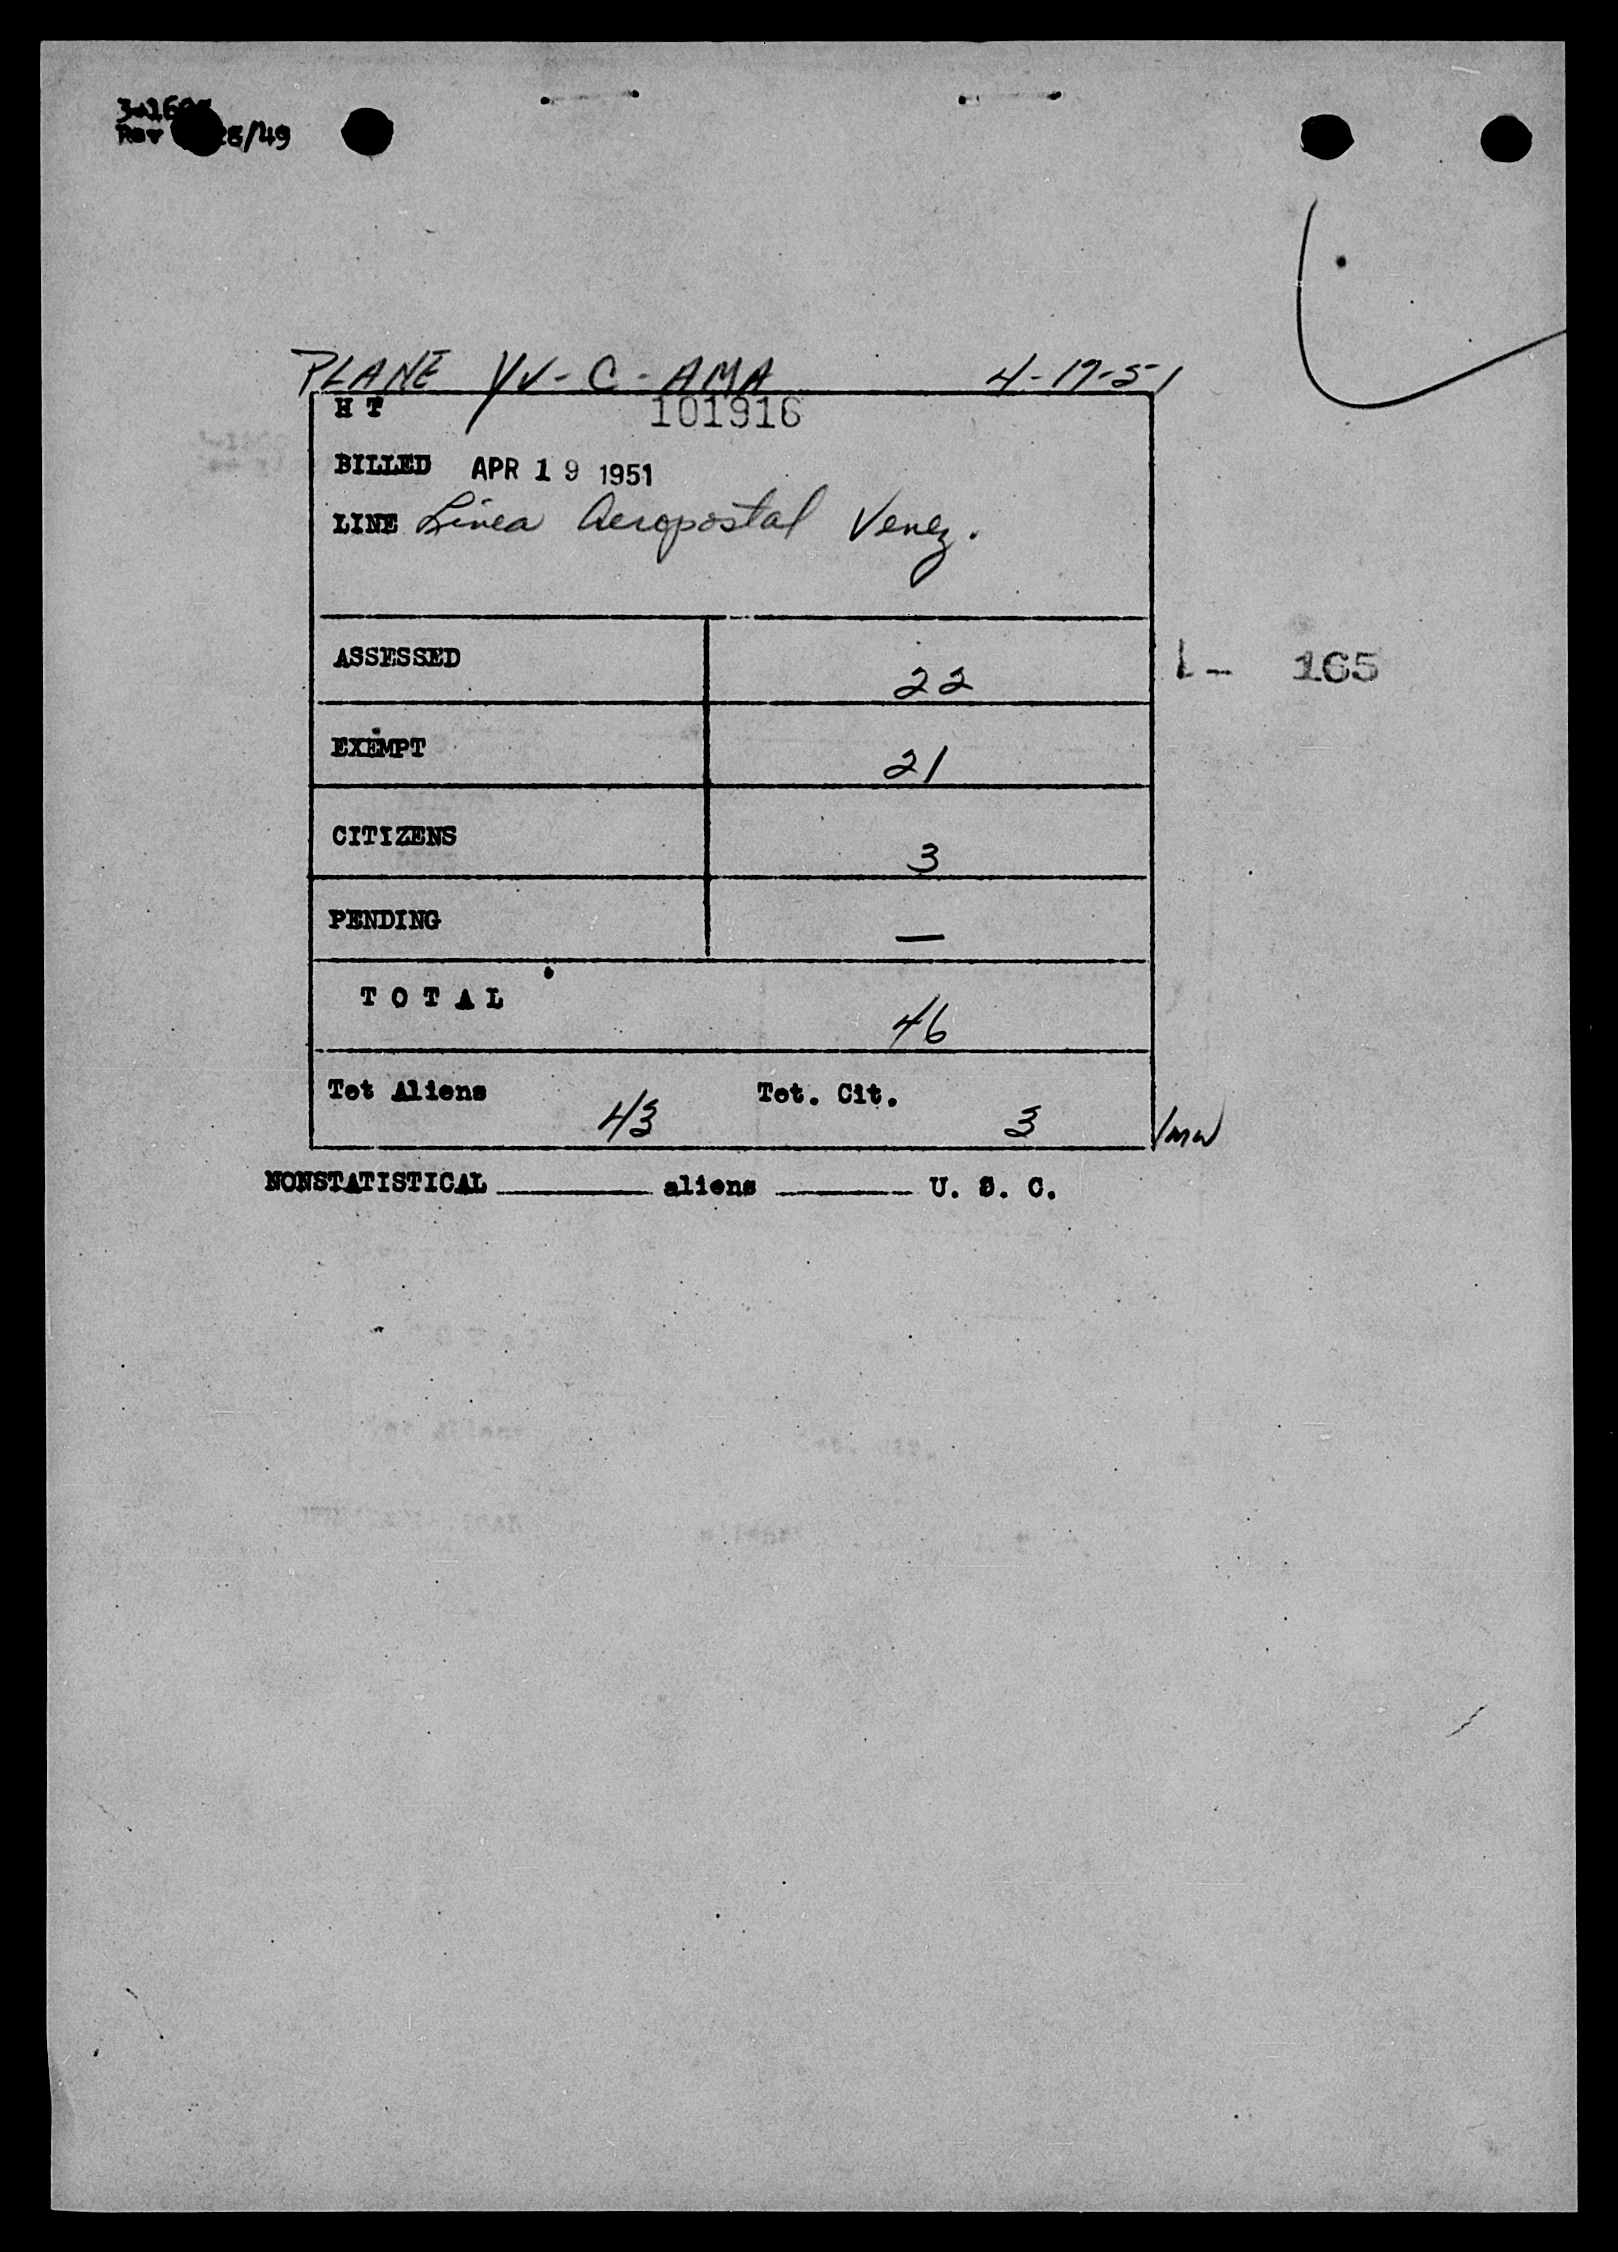 Rev 28/49
PLANE YV-C-AMA 4-17-51
H T 101916
BILLED APR 19 1951
LINE Linea Aeropostal Venez.
ASSESSED 22
1- 165
EXEMPT 21
CITIZENS 3
PENDING —
TOTAL 46
Tot Aliens 43 Tot. Cit. 3
NONSTATISTICAL ______ aliens ______ U. S. C.